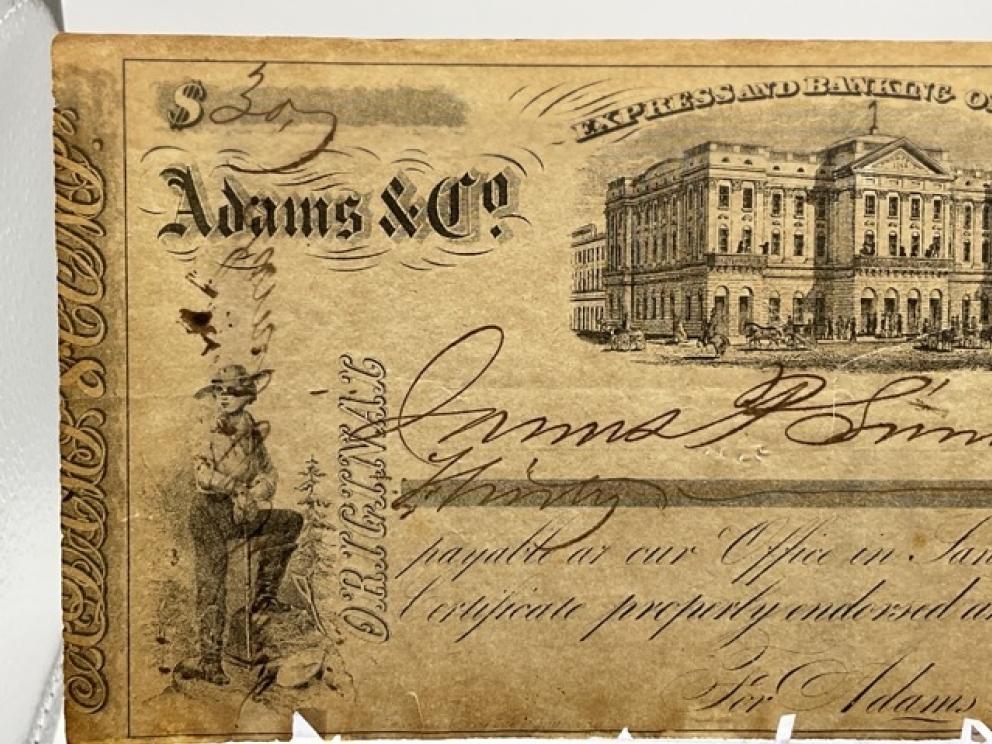 $ 30,
EXPRESS AND BANKING
Adams & Co.
ORIGINAL
James
Thirty
payable at our Office in San
Certificate properly endorsed
For Adams